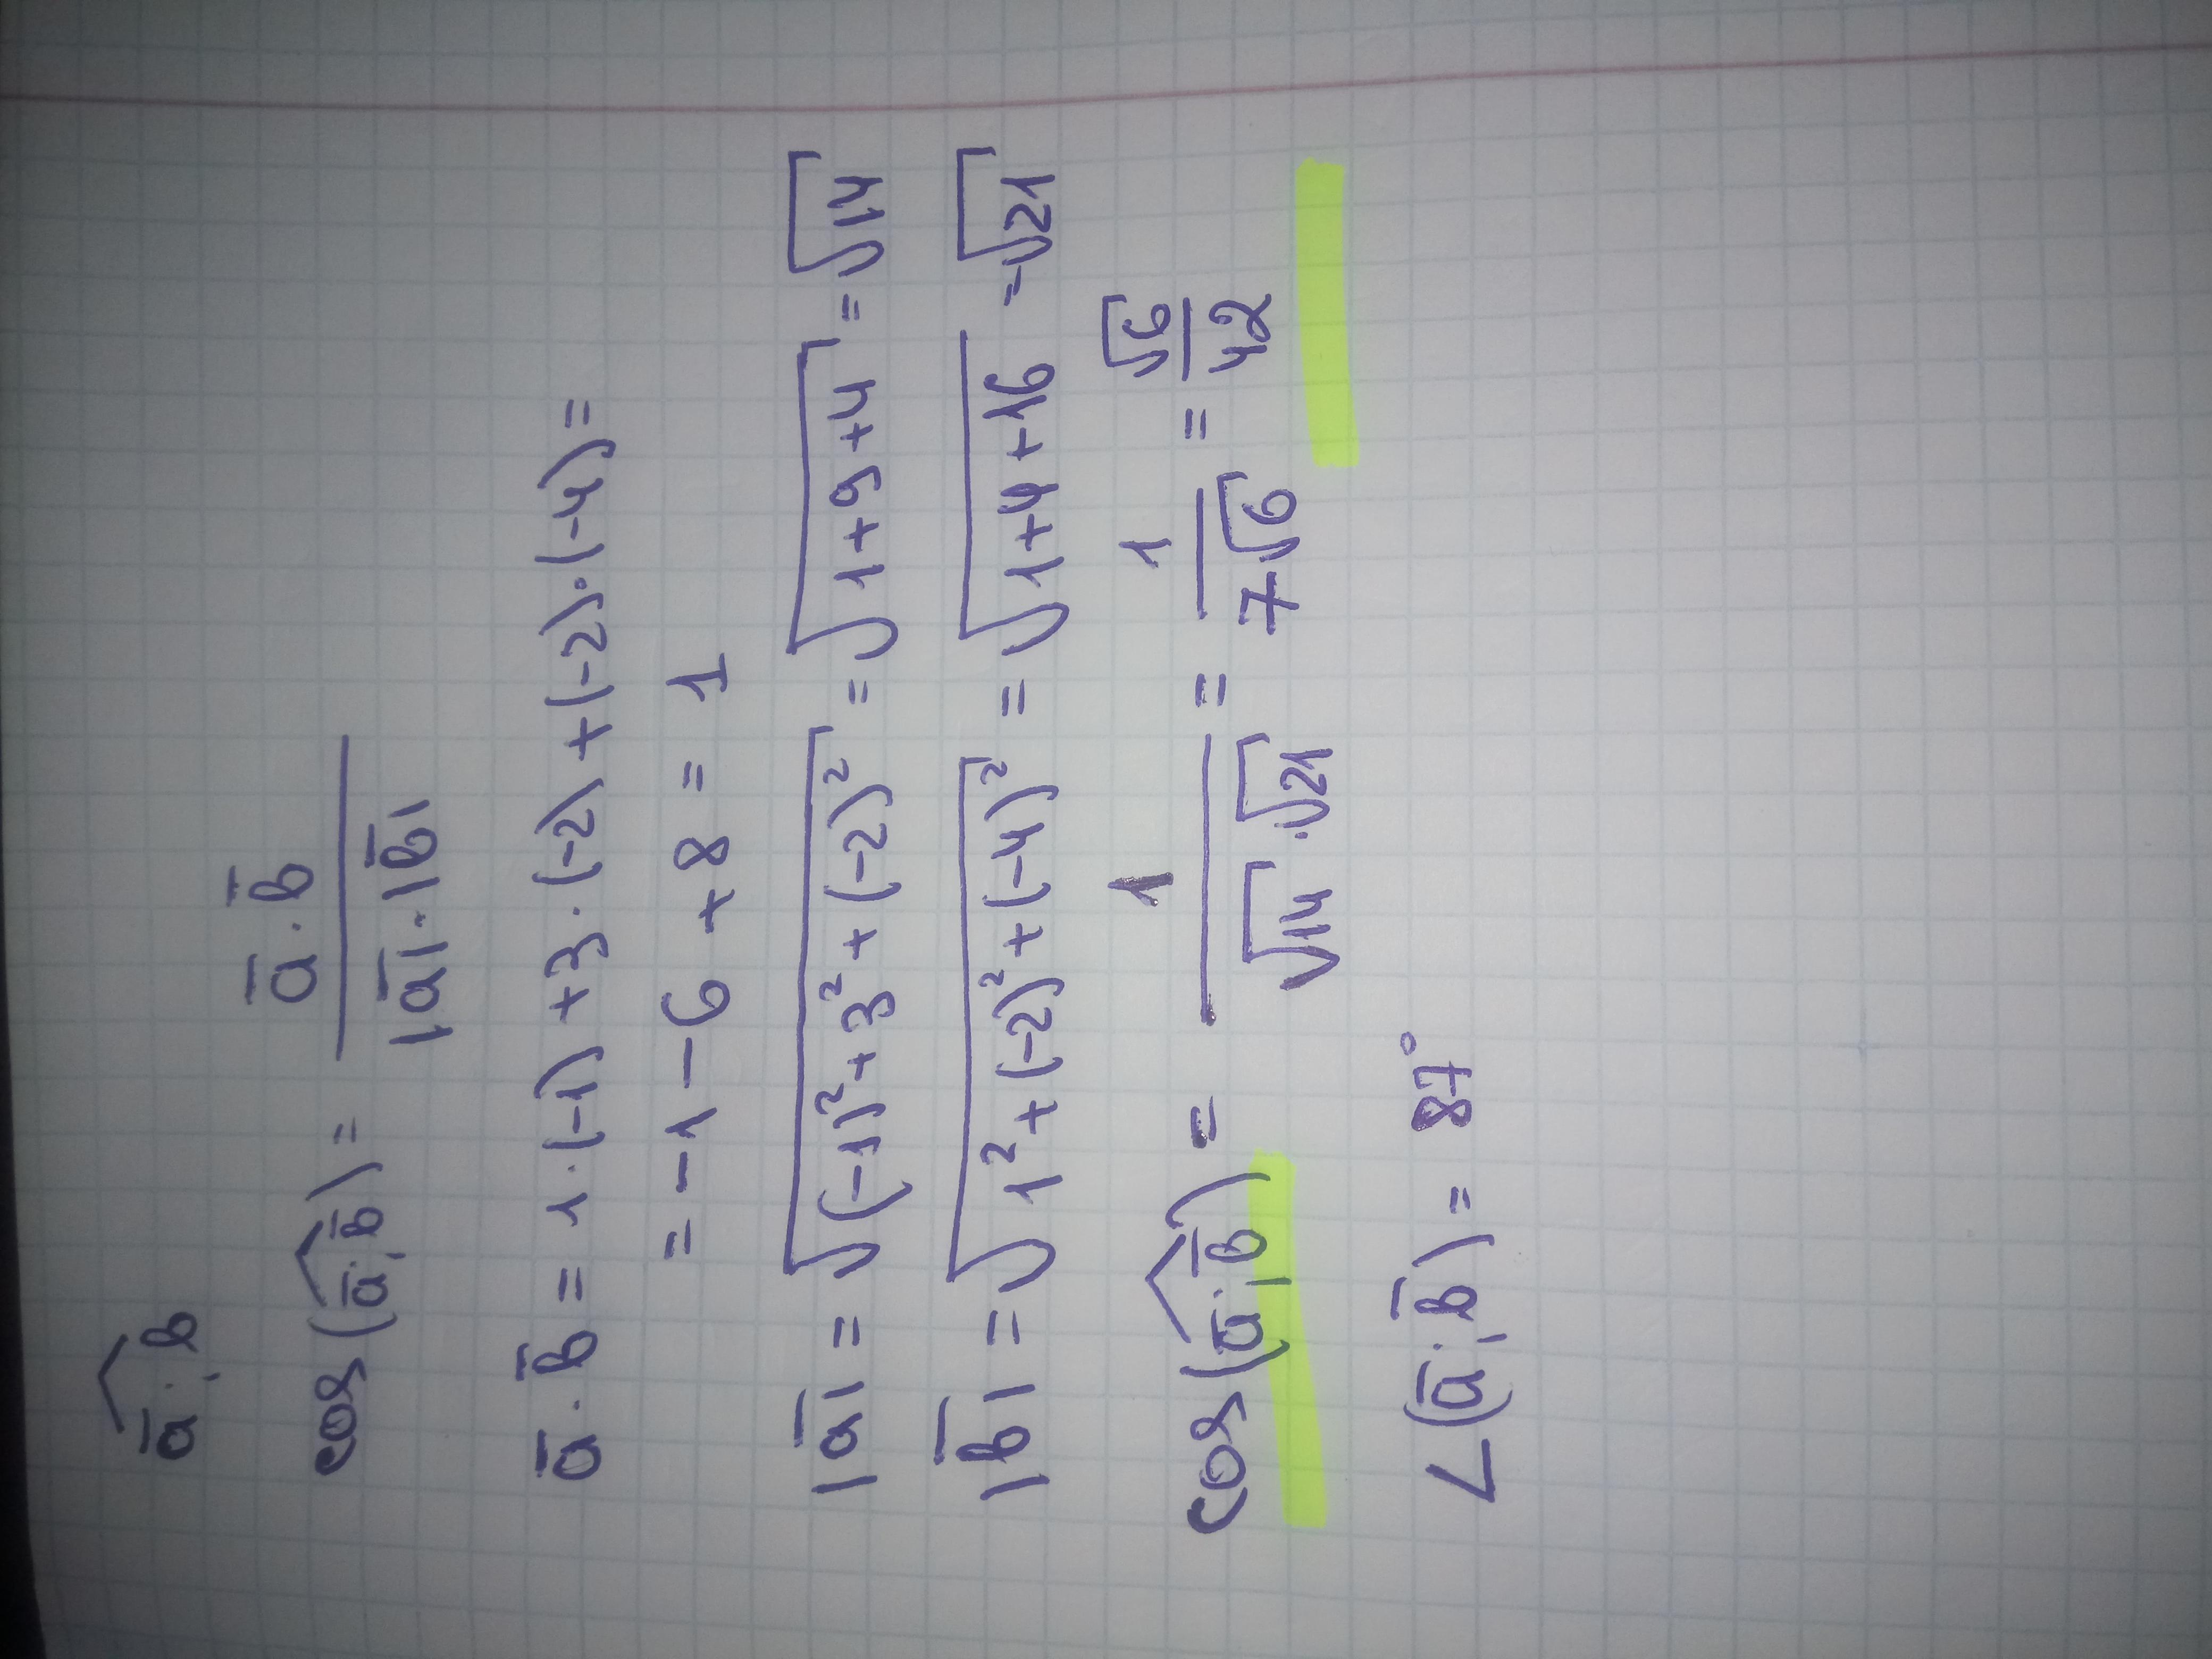 a̅; b
cos(a̅; b̅) = (a̅ · b̅) / (|a̅| · |b̅|)
a̅ · b̅ = 1 · (-1) + 3 · (-2) + (-2) · (-4) =
= -1 - 6 + 8 = 1
|a̅| = √((-1)² + 3² + (-2)²) = √(1 + 9 + 4) = √14
|b̅| = √(1² + (-2)² + (-4)²) = √(1 + 4 + 16) = √21
cos(a̅; b̅) = 1 / (√14 · √21) = 1 / (7√6) = √6 / 42
∠(a̅; b̅) = 87°